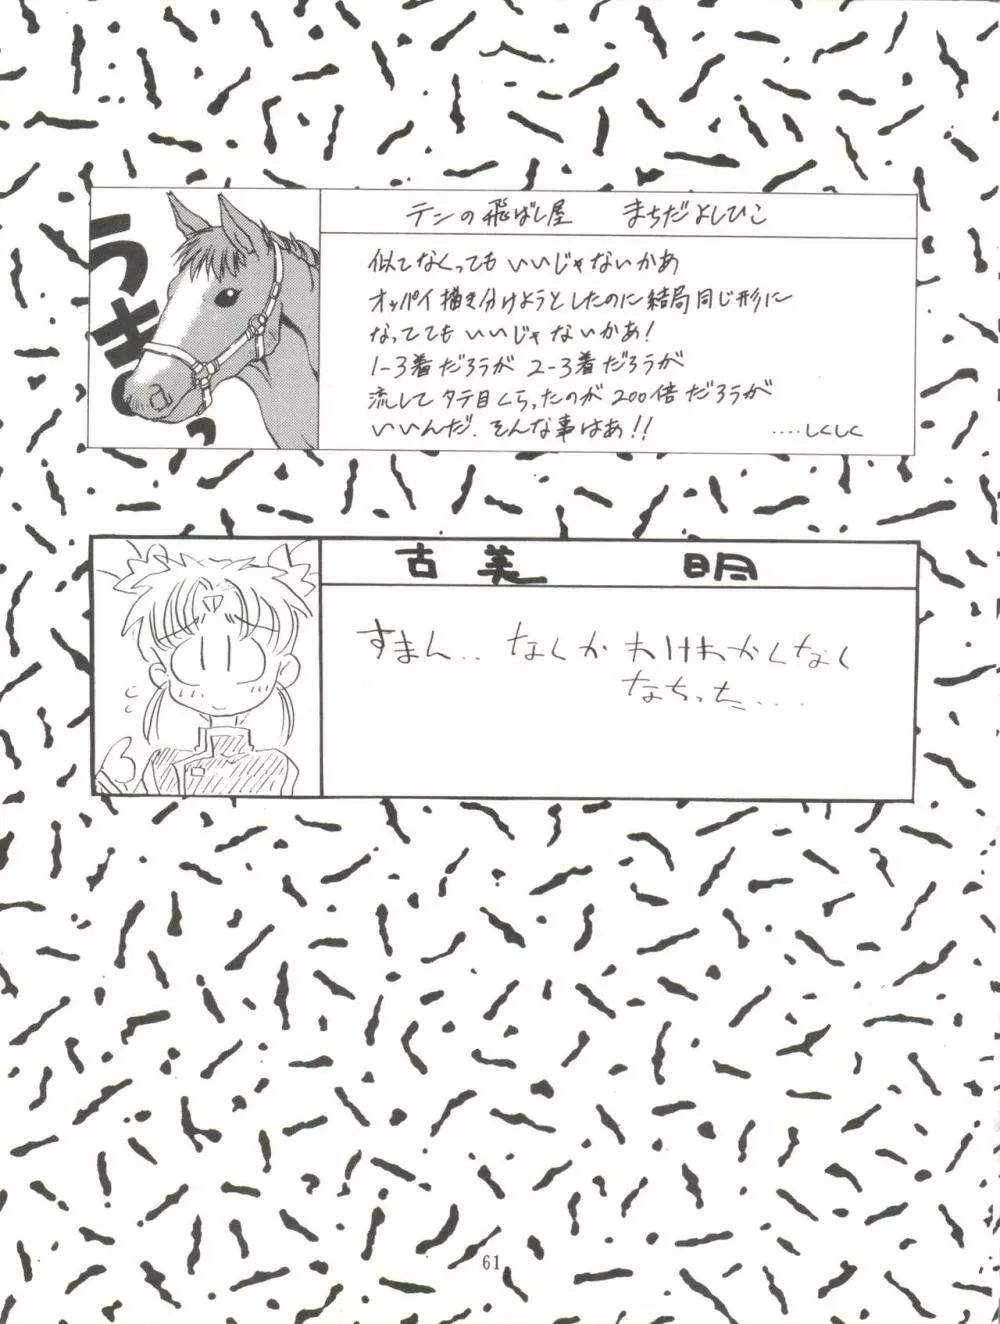 うきっっ
テンの飛ばし屋 まちだよしひこ
似てなくってもいいじゃないかあ
オッパイ描き分けようとしたのに結局同じ形に
なっててもいいじゃないかあ!
1-3着だろうが 2-3着だろうが
流してタテ目くらったのが 200倍だろうが
いいんだ、そんな事はあ!!
....しくしく
古美 明
すまん.. なんか わけわかんなく
なちった....
61